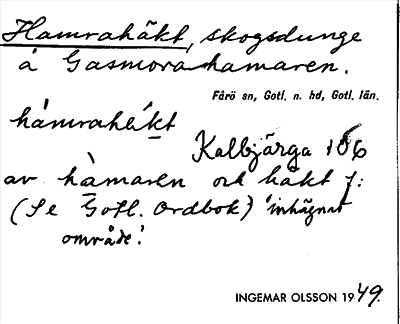 Hamrahäkt, skogsdunge
å Gasmora hamaren.
Fårö sn, Gotl. n. hd, Gotl. län.
hàmrahä́kt
Kalbjärga 106
av hàmaren och häkt f:
(Se Gotl. Ordbok) 'inhägnat
område'.
INGEMAR OLSSON 1949.